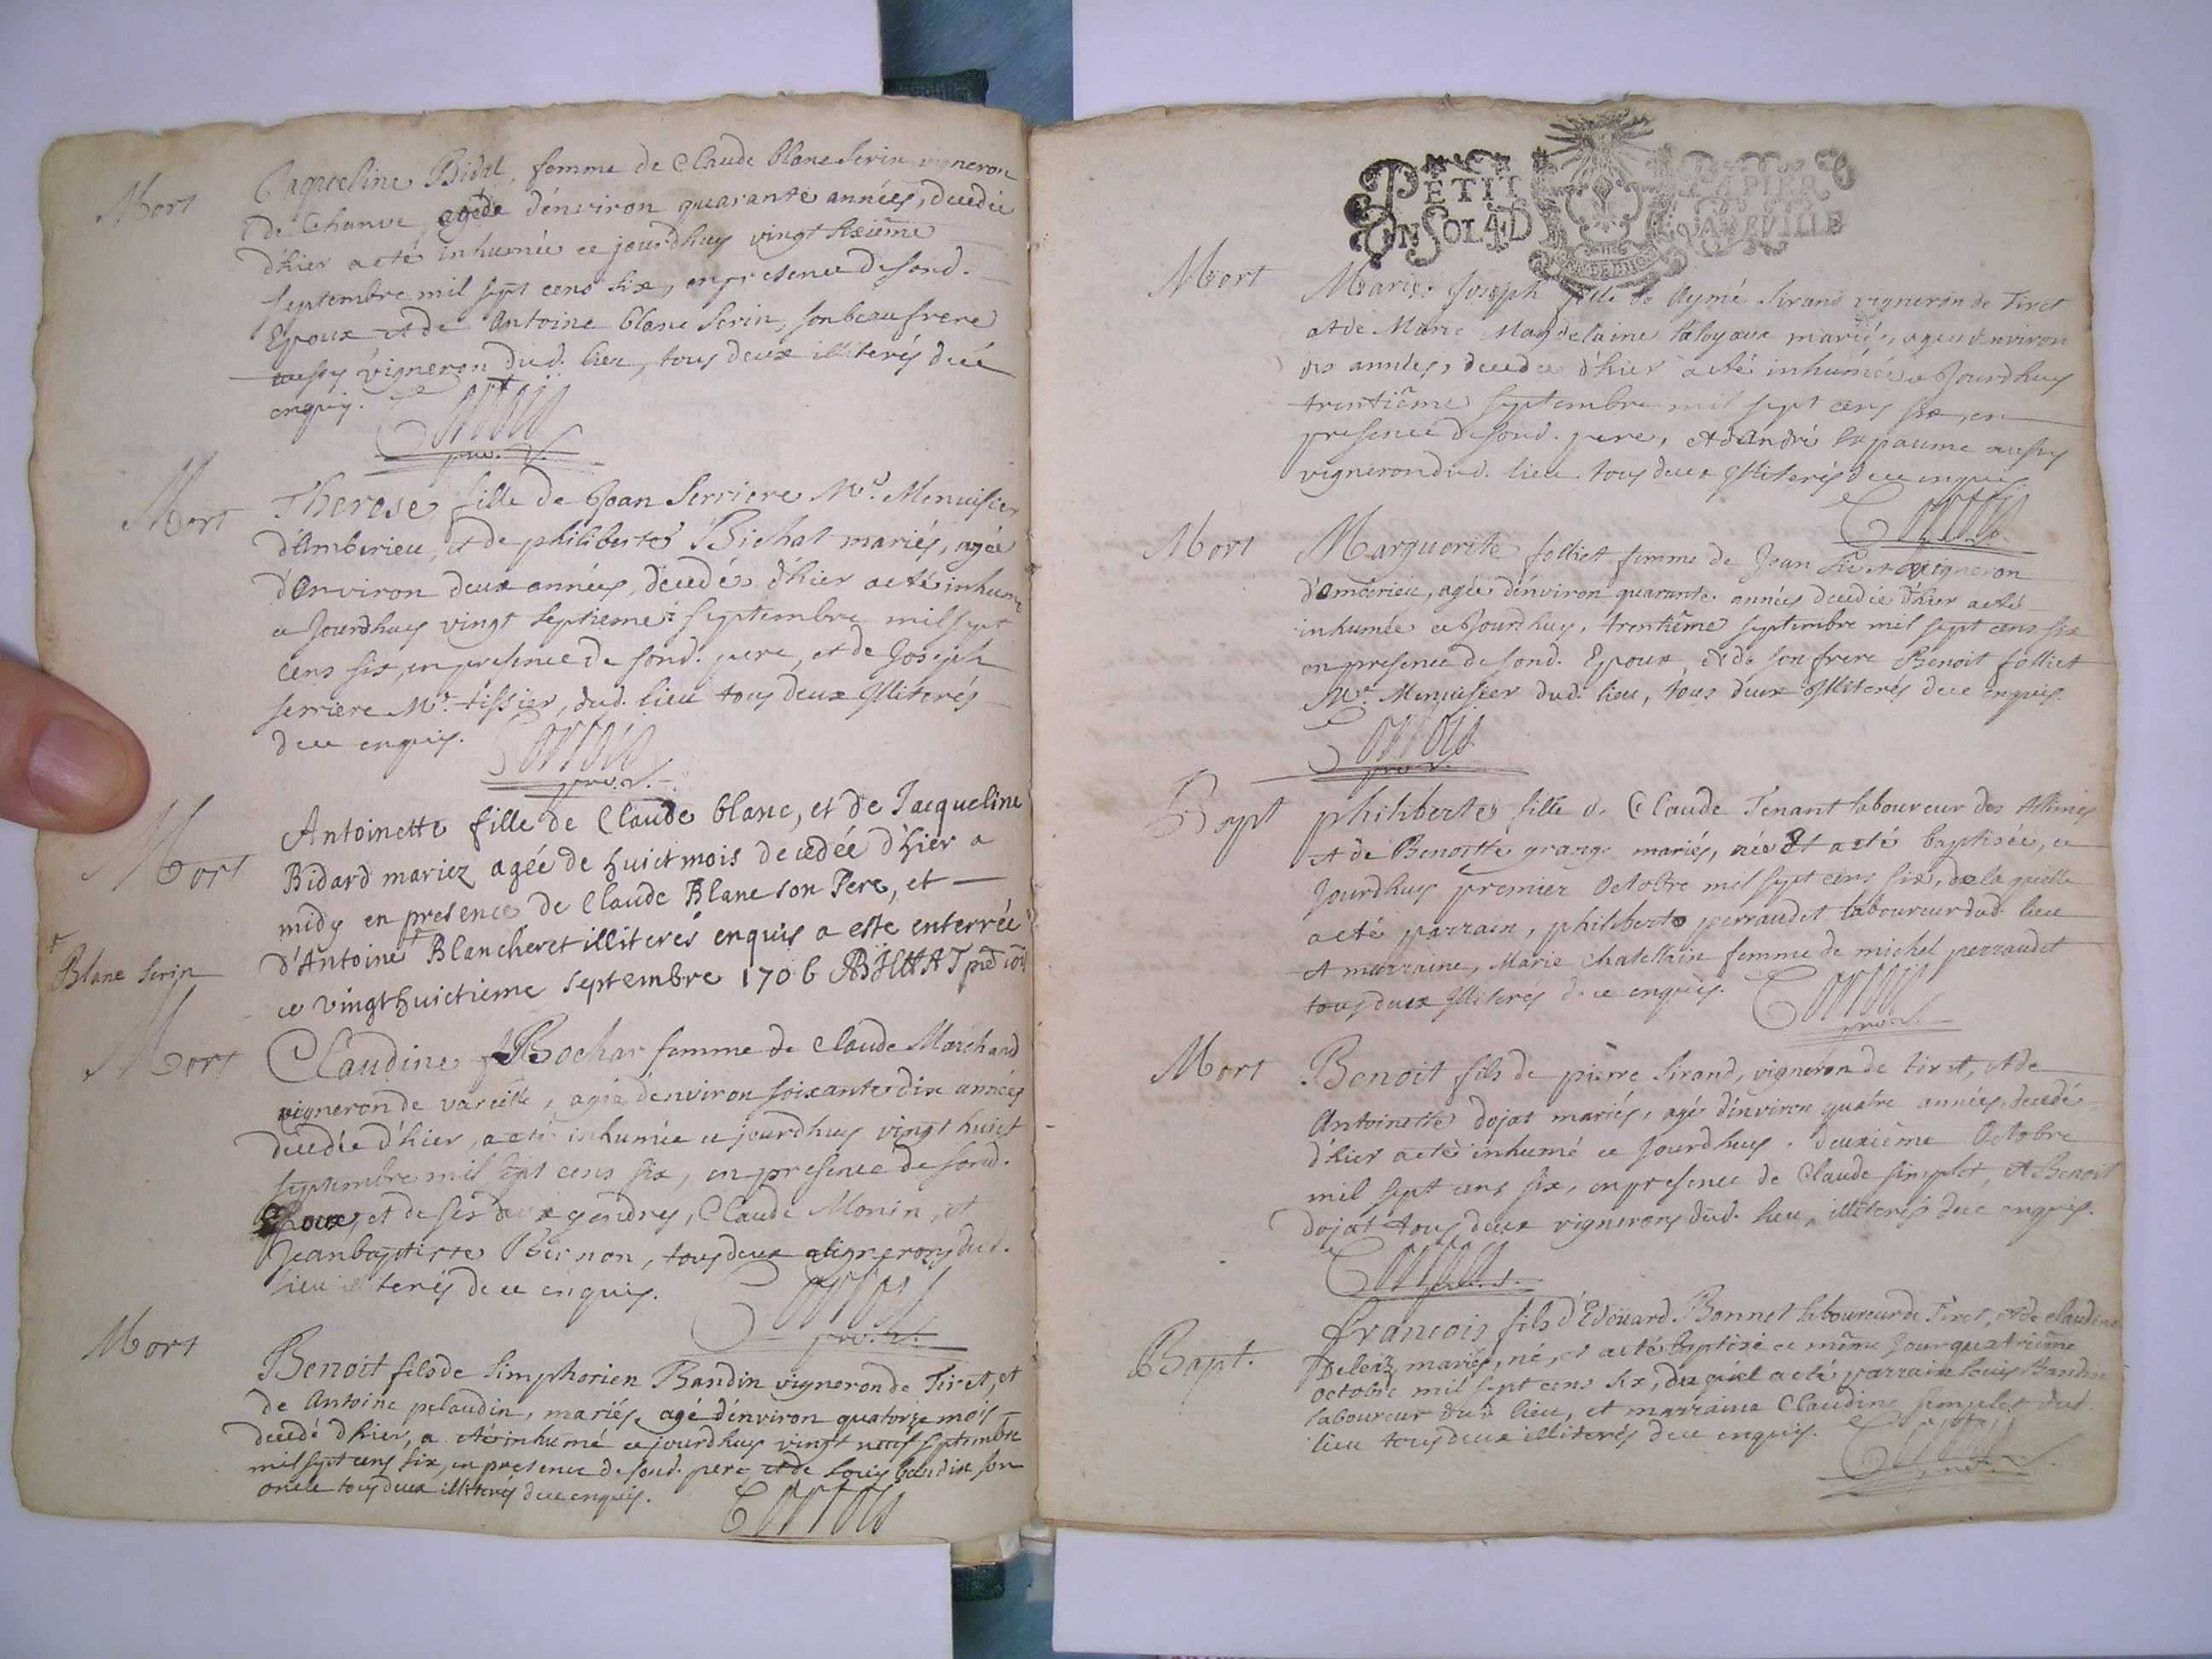 Mort
Jaqueline Bidal, femme de Claude blanc Serin vigneron
de Chanve, agée d'environ quarante années, decedée
d'hier a eté inhumée ce jourdhuy vingt sixiême
septembre mil sept cens six, en presence de sond.
Epoux et de Antoine blanc Serin, son beau frere
aussy vigneron dud. lieu, tous deux illiterés de ce
enquis.
Mort
Therese fille de Jean Serriere Me. Menuisier
d'Amberieu, et de philiberte Bichat mariés, agée
d'environ deux années, decedée d'hier a eté inhumé
ce Jourdhuy vingt septieme septembre mil sept
cens six, en presence de sond. pere, et de Joseph
serriere Me. tissier, dud. lieu tous deux illiterés
de ce enquis.
Mort
Antoinette fille de Claude blanc, et de Jacqueline
Bidard mariez agée de huict mois decedée d'hier a
midy en presence de Claude Blanc son Pere, et
d'Antoine + Blancheret illiterés enquis a esté enterrée
+
Blanc Serin
ce vingthuictieme septembre 1706
Mort
Claudine Bochar femme de Claude Marchand
vigneron de vareille, agée denviron soixante dix années
decedée d'hier, a eté inhumée ce jourdhuy vingt huict
septembre mil sept cens six, en presence de sond.
Epoux, et de ses deux gendres, Claude Monin, et
Jeanbaptiste Bernon, tous deux vignerons dud.
lieu illiterés de ce enquis.
Mort
Benoit fils de Simphorien Bandin vigneron de Tiret, et
de Antoine pelaudin, mariés, agé d'environ quatorze mois
decedé d'hier, a eté inhumé ce jourdhuy vingt neuf septembre
mil sept cens six, en presence de sond. pere et de Louis bandin son
oncle tous deux illiterés de ce enquis.
PETIT PAPIER
UN SOL 4 D LAVEVILLE
Mort
Marie Joseph fille de Aymé Sirand vigneron de Tiret
et de Marie Magdelaine mariés, agée d'environ
dix années, decedée d'hier a eté inhumée ce Jourdhuy
trentiême septembre mil sept cens six, en
presence de sond. pere, et d'André la paume aussy
vigneron dud. lieu tous deux illiterés de ce enquis.
Mort
Marguerite folliet femme de Jean vigneron
d'Amberieu, agée d'environ quarante années decedée d'hier a eté
inhumée ce Jourdhuy, trentiême septembre mil sept cens six
en presence de sond. Epoux, et de son frere Benoit folliet
Me. Menuisier dud. lieu, tous deux illiterés de ce enquis.
Bapt
philiberte fille de Claude Tenant laboureur des Allimes
et de Benoitte grange mariés, née et a eté baptisée, ce
Jourdhuy premier Octobre mil sept cens six, de la quelle
a eté parrain, philibert perraudet laboureur dud. lieu
et marraine, Marie Chatellain femme de michel perraudet
tous deux illiterés de ce enquis.
Mort
Benoit fils de pierre Sirand, vigneron de tiret, et de
Antoinette dojat mariés, agé d'environ quatre années, decedé
d'hier a eté inhumé ce Jourdhuy deuxiême Octobre
mil sept cens six, en presence de Claude simplet, et Benoit
dojat tous deux vignerons dud. lieu, illiterés de ce enquis.
Bapt.
François fils d'Edoüard Bonnet laboureur de Tiret, et de Claudine
mariés, né, et a eté baptisé ce même Jour quatriême
octobre mil sept cens six, du quel a eté parrain Louis Bandin
laboureur dud. lieu, et marraine Claudine simplet dud.
lieu tous deux illiterés de ce enquis.